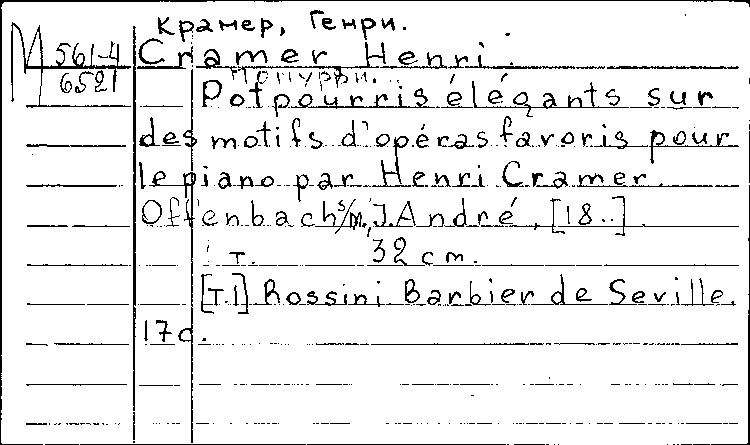 Крамер, Генри.
М 561-4
6521
Cramer Henri.
Попурри...
Potpourris élégants sur
des motifs d'opéras favoris pour
le piano par Henri Cramer.
Offenbach s/M., J. André, [18..].
т. 32 cm.
[т.1] Rossini Barbier de Seville.
17с.